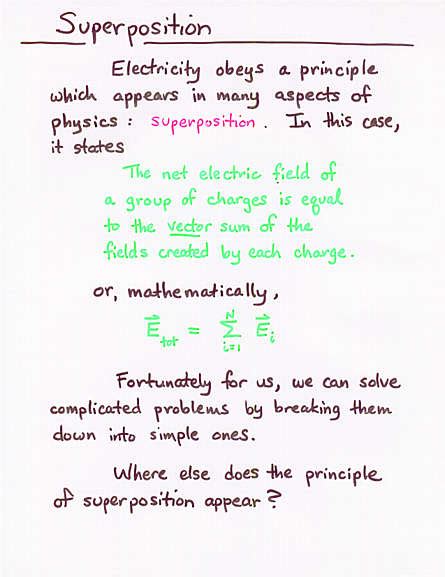 Superposition
Electricity obeys a principle
which appears in many aspects of
physics : superposition. In this case,
it states
The net electric field of
a group of charges is equal
to the vector sum of the
fields created by each charge.
or, mathematically,
E⃗_tot = Σ_{i=1}^{N} E⃗_i
Fortunately for us, we can solve
complicated problems by breaking them
down into simple ones.
Where else does the principle
of superposition appear?